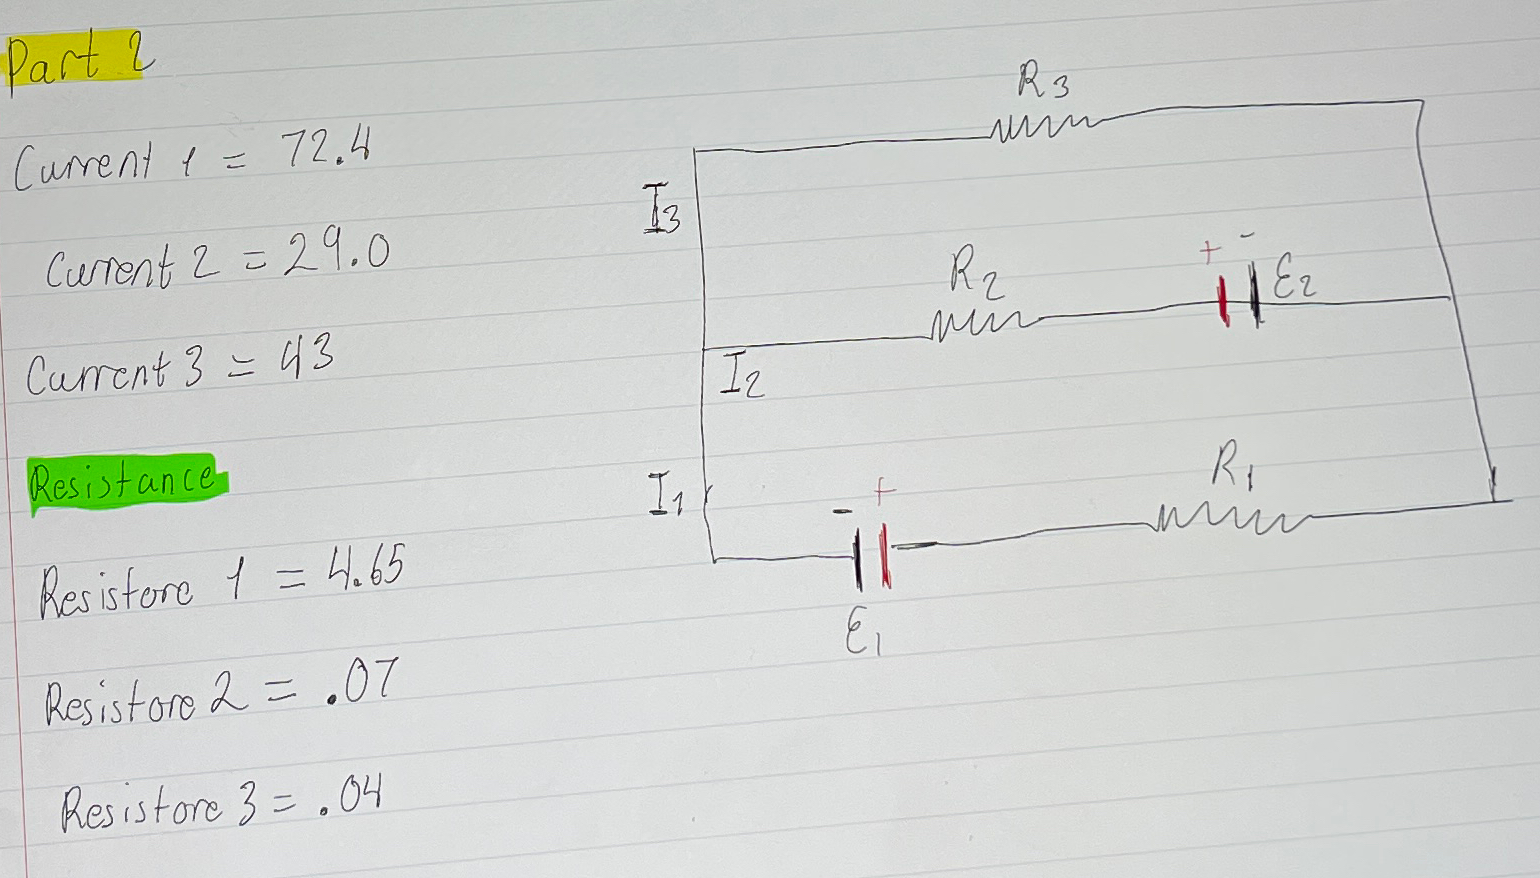 Part 2
Current 1 = 72.4
Current 2 = 29.0
Current 3 = 43
Resistance
Resistore 1 = 4.65
Resistore 2 = .07
Resistore 3 = .04
R3
I3
R2
+ -
ε2
I2
R1
I1
- +
ε1